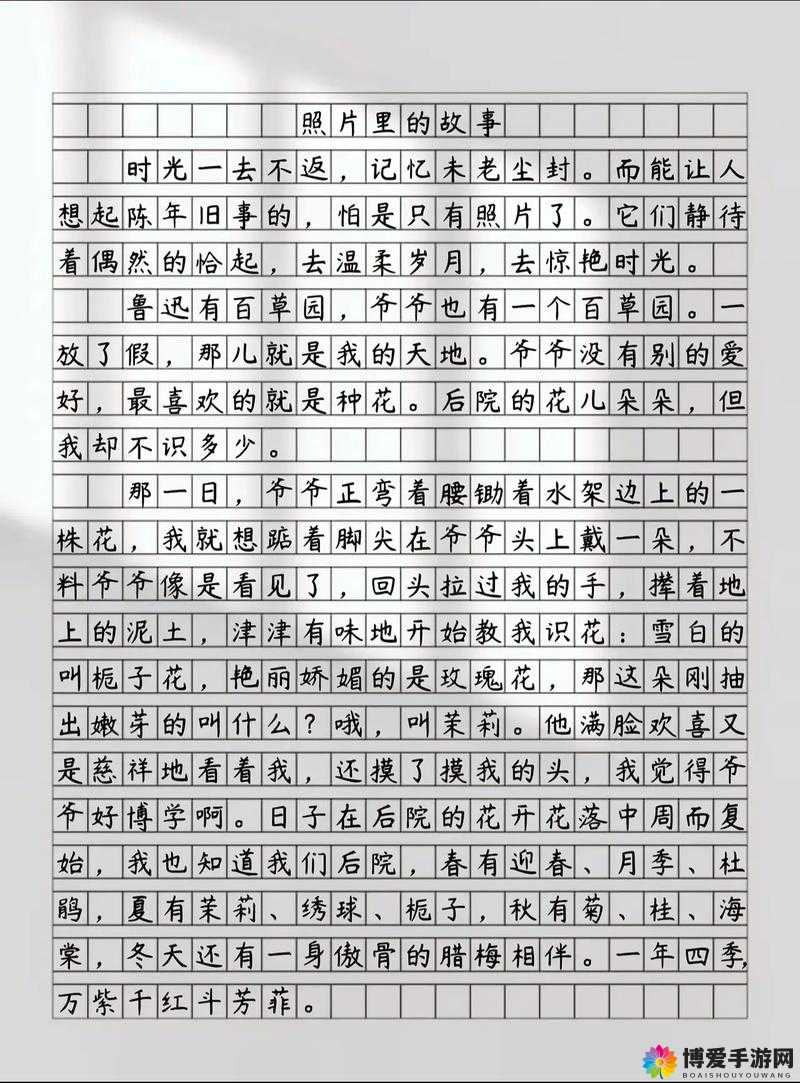 照片里的故事
时光一去不返，记忆未老尘封。而能让人
想起陈年旧事的，怕是只有照片了。它们静待
着偶然的恰起，去温柔岁月，去惊艳时光。
鲁迅有百草园，爷爷也有一个百草园。一
放了假，那儿就是我的天地。爷爷没有别的爱
好，最喜欢的就是种花。后院的花儿朵朵，但
我却不识多少。
那一日，爷爷正弯着腰锄着水架边上的一
株花，我就想踮着脚尖在爷爷头上戴一朵，不
料爷爷像是看见了，回头拉过我的手，撵着地
上的泥土，津津有味地开始教我识花：雪白的
叫栀子花，艳丽娇媚的是玫瑰花，那这朵刚抽
出嫩芽的叫什么？哦，叫茉莉。他满脸欢喜又
是慈祥地看着我，还摸了摸我的头，我觉得爷
爷好博学啊。日子在后院的花开花落中周而复
始，我也知道我们后院，春有迎春、月季、杜
鹃，夏有茉莉、绣球、栀子，秋有菊、桂、海
棠，冬天还有一身傲骨的腊梅相伴。一年四季，
万紫千红斗芳菲。
博爱手游网
BOAISHOUYOUWANG